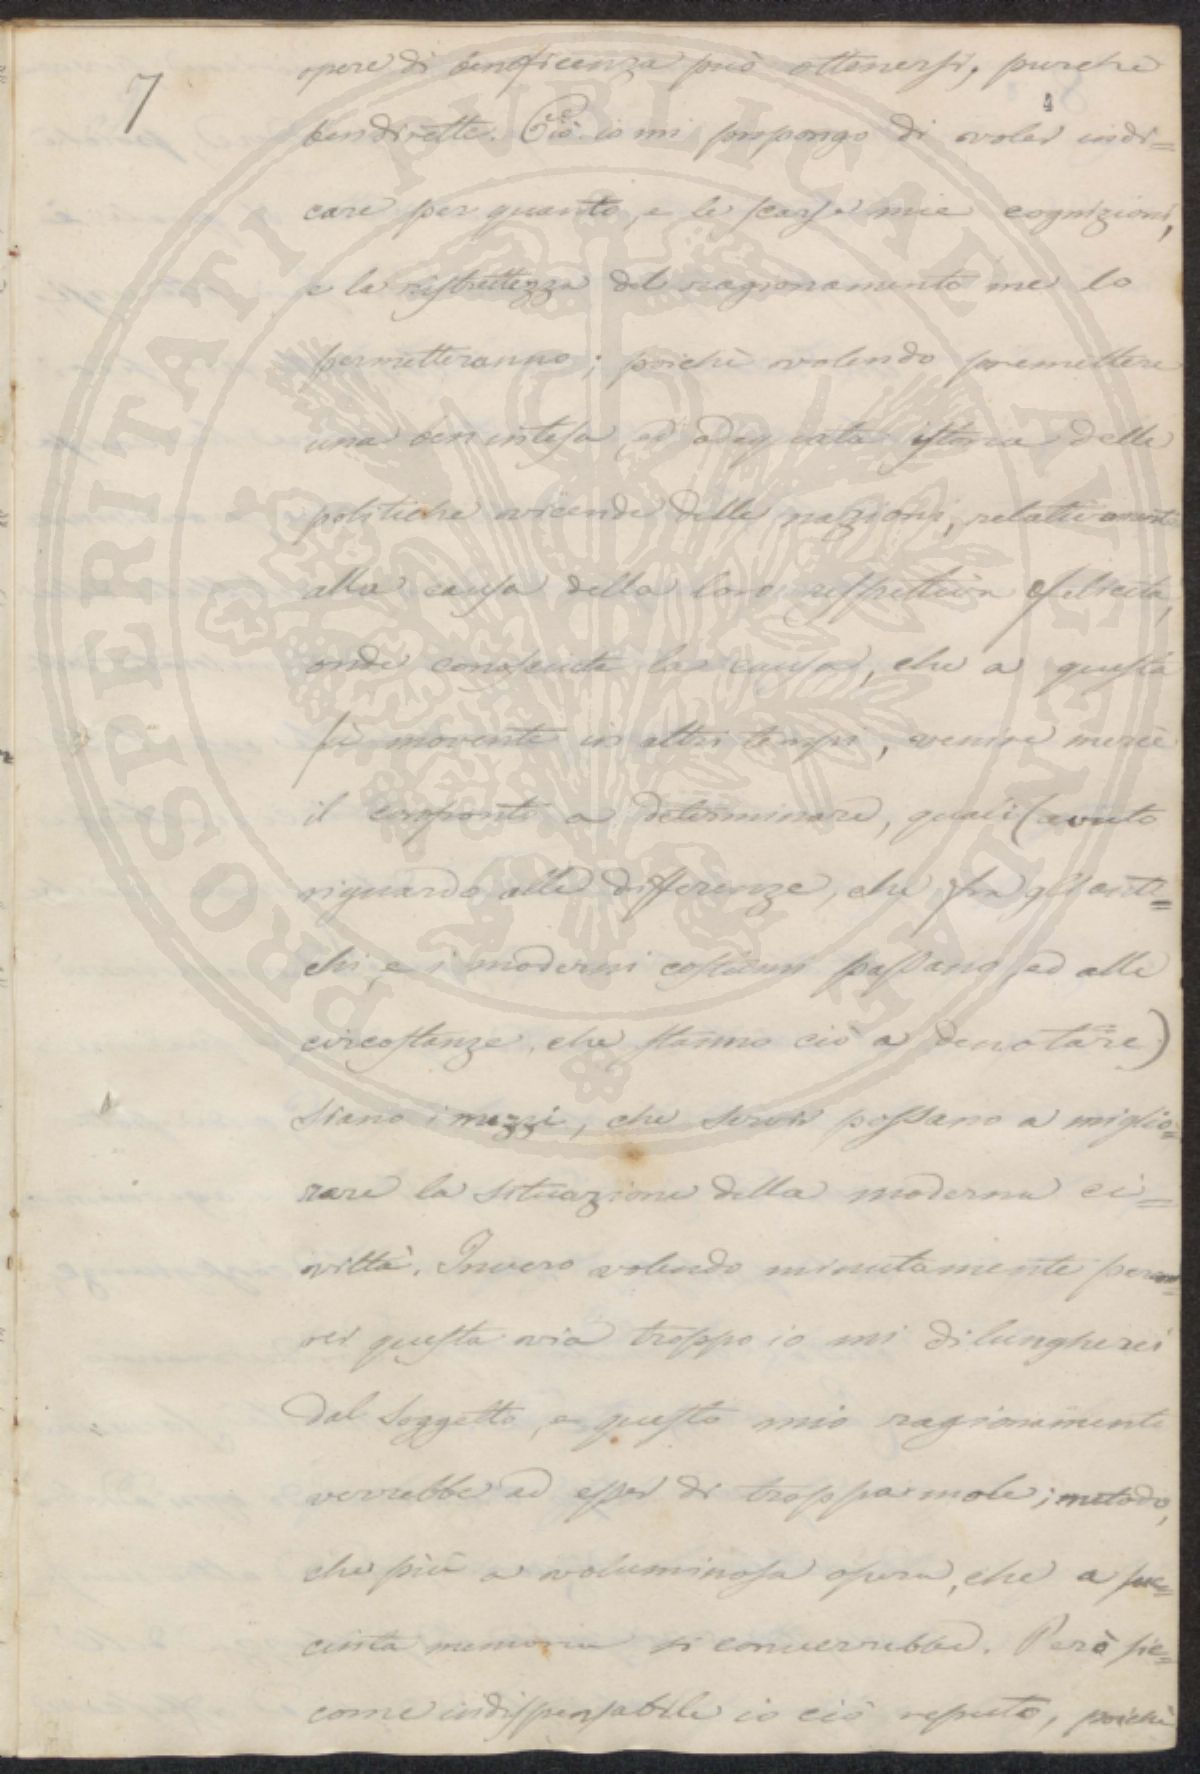 7
4
opere di beneficenza può ottenersi, purchè
ben dirette. Ciò io mi propongo di voler indi=
care per quanto, e le scarse mie cognizioni,
e la ristrettezza del ragionamento me lo
permetteranno; poichè volendo premettere
una ben intesa ed adeguata istoria delle
politiche vicende delle nazioni, relativamente
alla causa della loro rispettiva felicità,
onde conosciuta la causa, che a questa
fù movente in altri tempi, venire mercè
il confronto a determinare, quali (avuto
riguardo alle differenze, che fra gli anti=
chi, e i moderni costumi passano, ed alle
circostanze, che stanno ciò a denotare)
siano i mezzi, che servir possano a miglio=
rare la situazione della moderna ci=
viltà. Invero volendo minutamente percor=
rer questa via troppo io mi dilungherei
dal soggetto, e questo mio ragionamento
verrebbe ad esser di troppa mole; metodo,
che più a voluminosa opera, che a suc=
cinta memoria si converrebbe. Però sic=
come indispensabile io ciò reputo, poichè
PROSPERITATI PUBLICAE AUGENDAE